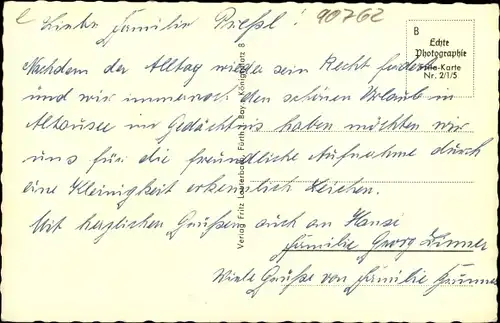 Liebe Familie Pressl!
90762
Nachdem der Alltag wieder sein Recht fordert
und wir immernoch den schönen Urlaub in
Altaussee im Gedächtnis haben möchten wir
uns für die freundliche Aufnahme durch
eine Kleinigkeit erkenntlich zeichen.
Mit herzlichen Grüßen auch an Hansi
Familie Georg
Viele Grüße von Familie
B
Echte
Photographie
Serie-Karte
Nr. 2/1/5
Verlag Fritz Lauterbach, Fürth i. Bay., Königsplatz 8